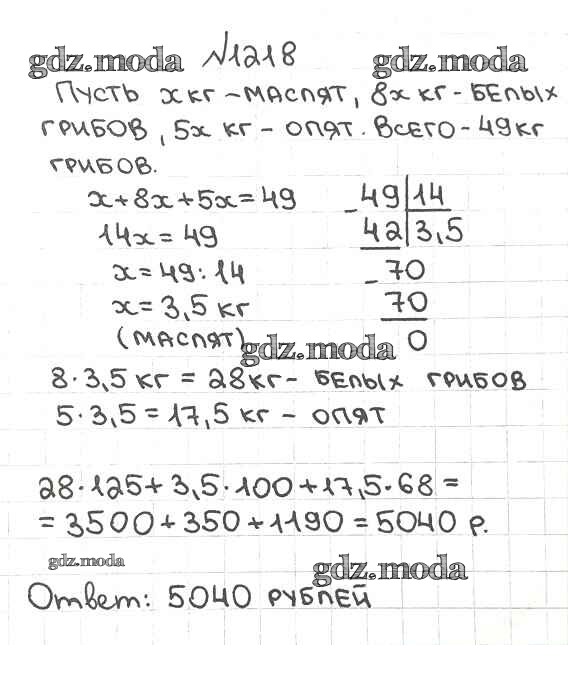 №1218
gdz.moda gdz.moda
Пусть x кг – маслят, 8x кг – белых
грибов, 5x кг – опят. Всего – 49 кг
грибов.
x+8x+5x=49
14x=49
x=49:14
x=3,5 кг
(маслят)
- 49 | 14
42 | 3,5
- 70
70
0
gdz.moda
8·3,5 кг = 28 кг – белых грибов
5·3,5 = 17,5 кг – опят
28·125+3,5·100+17,5·68=
=3500+350+1190=5040 р.
gdz.moda gdz.moda
Ответ: 5040 рублей